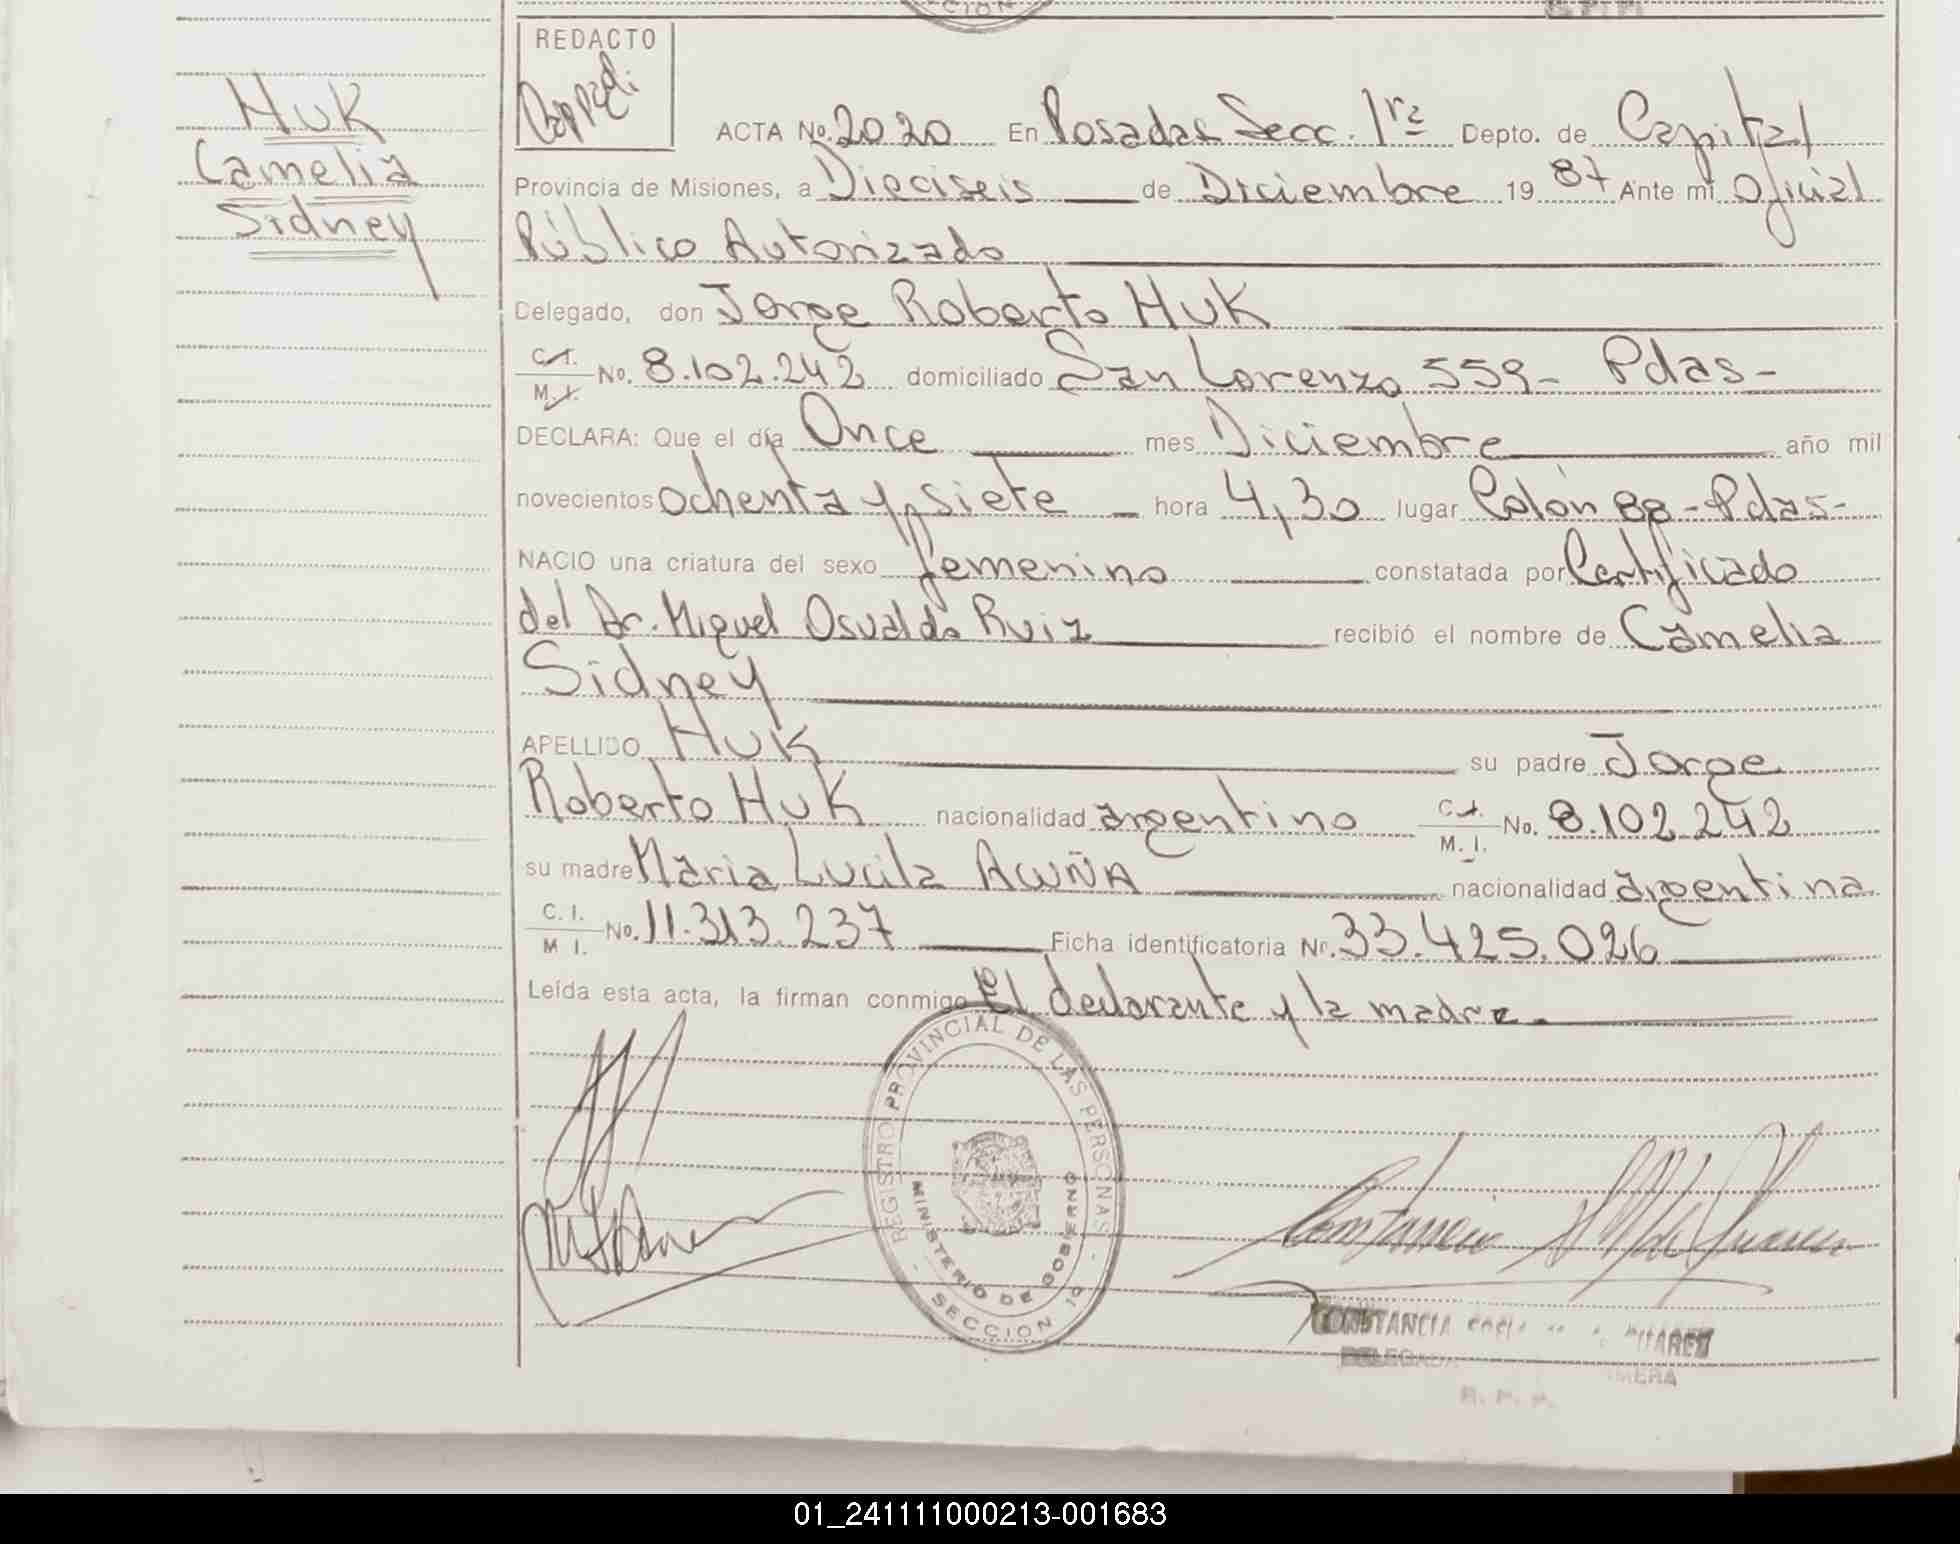 SECCION
REDACTO
Huk
Camelia
Sidney
ACTA No. 2020 En Posadas Secc. 1ra Depto. de Capital
Provincia de Misiones, a Dieciseis de Diciembre 19 87 Ante mi Oficial
Público Autorizado
Delegado, don Jorge Roberto Huk
C.I. M.I. No. 8.102.242 domiciliado San Lorenzo 559- Pdas-
DECLARA: Que el día Once mes Diciembre año mil
novecientos ochenta y siete - hora 4,30 lugar Colón 88-Pdas-
NACIO una criatura del sexo femenino constatada por Certificado
del Dr. Miguel Osvaldo Ruiz recibió el nombre de Camelia
Sidney
APELLIDO Huk su padre Jorge
Roberto Huk nacionalidad argentino C.I. M.I. No. 8.102.242
su madre Maria Lucila Acuña nacionalidad argentina
C.I. M I. No. 11.313.237 Ficha identificatoria Nº. 33.425.026
Leída esta acta, la firman conmigo El declarante y la madre.
REGISTRO PROVINCIAL DE LAS PERSONAS
MINISTERIO DE GOBIERNO
SECCION 1a
CONSTANCIA
DELEGADA
R. P. P.
01_241111000213-001683